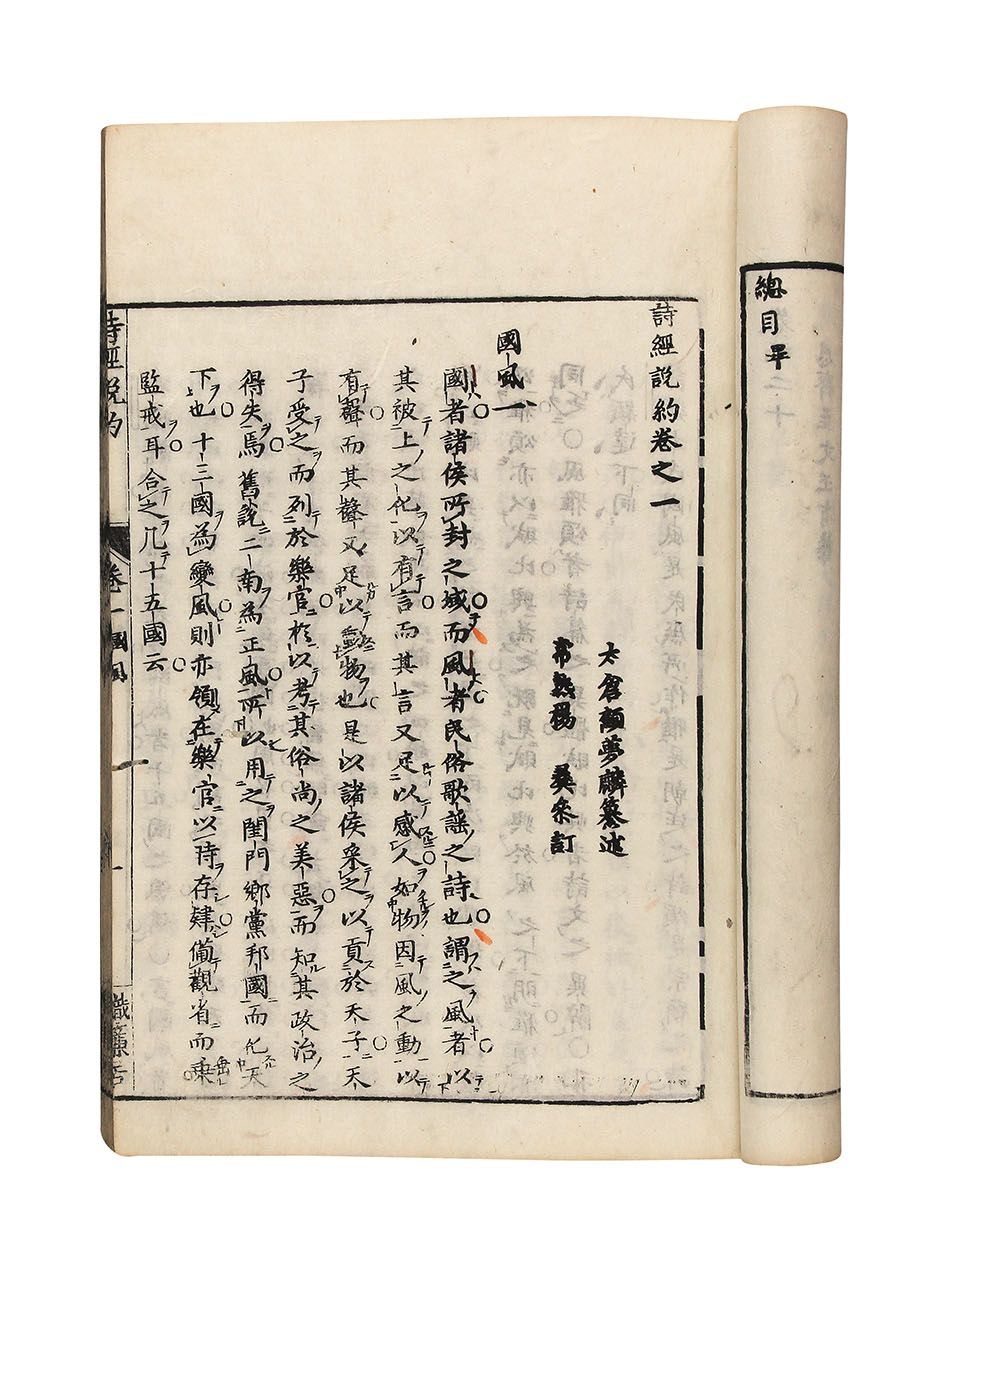 總目畢
詩經說約卷之一
太倉顧夢麟纂述
常熟楊　彝叅訂
國風一
國者諸侯所封之域而風者民俗歌謠之詩也謂之風者以
其被上之化以有言而其言又足以感人如物因風之動以
有聲而其聲又足以動物也是以諸侯采之以貢於天子天
子受之而列於樂官於以考其俗尚之美惡而知其政治之
得失焉舊說二南為正風所以用之閨門鄉黨邦國而化天
下也十三國為變風則亦領在樂官以時存肄備觀省而垂
監戒耳合之凡十五國云
詩經說約
卷一國風
一
織簾居